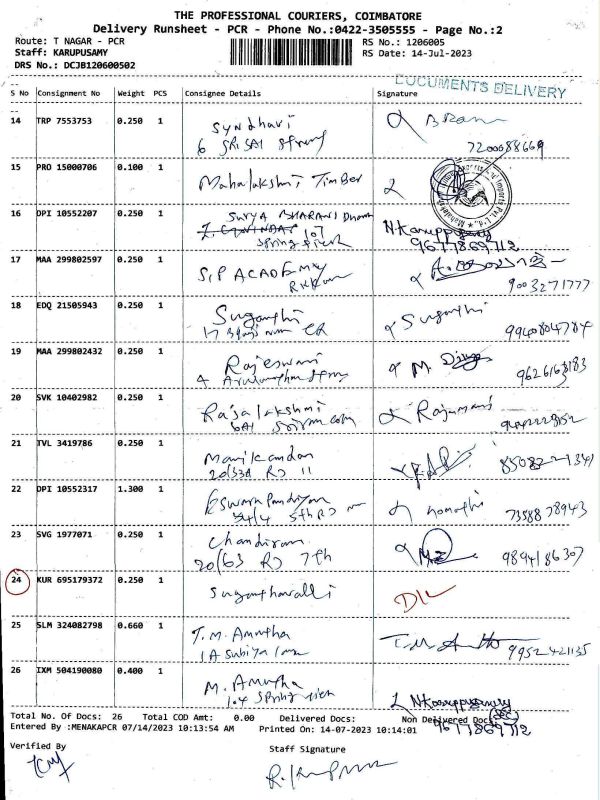 THE PROFESSIONAL COURIERS, COIMBATORE
Delivery Runsheet - PCR - Phone No.:0422-3505555 - Page No.:2
Route: T NAGAR - PCR
Staff: KARUPUSAMY
DRS No.: DCJB120600502
RS No.: 1206005
RS Date: 14-Jul-2023
DOCUMENTS DELIVERY
S No Consignment No Weight PCS Consignee Details Signature
14 TRP 7553753 0.250 1 Syndhavi
6 SRI SAI
7200088669
15 PRO 15000706 0.100 1 Mahalakshmi Timber
16 DPI 10552207 0.250 1 SURYA BHARANI
107
N Karuppusamy
9677869712
17 MAA 299802597 0.250 1 S.P ACADEMY
9003271777
18 EDQ 21505943 0.250 1 Suganthi Suganthi
17
9940804784
19 MAA 299802432 0.250 1 Rajeswari M.
4
9626163183
20 SVK 10402982 0.250 1 Rajalakshmi Rajamani
21 TVL 3419786 0.250 1 Manikandan
20/33A RD 11
22 DPI 10552317 1.300 1 Eswara Pandiyan
5th RD
7358878943
23 SVG 1977071 0.250 1 Chandiran
20/63 RD 7th
9894186307
24 KUR 695179372 0.250 1 Suganthavalli D/L
25 SLM 324082798 0.660 1 T.M. Amutha
1A Subiya
9952421135
26 IXM 504190080 0.400 1 M. Amutha
104 Spring
N Karuppusamy
9677869712
Total No. Of Docs: 26 Total COD Amt: 0.00 Delivered Docs: Non Delivered Docs:
Entered By :MENAKAPCR 07/14/2023 10:13:54 AM Printed On: 14-07-2023 10:14:01
Verified By Staff Signature